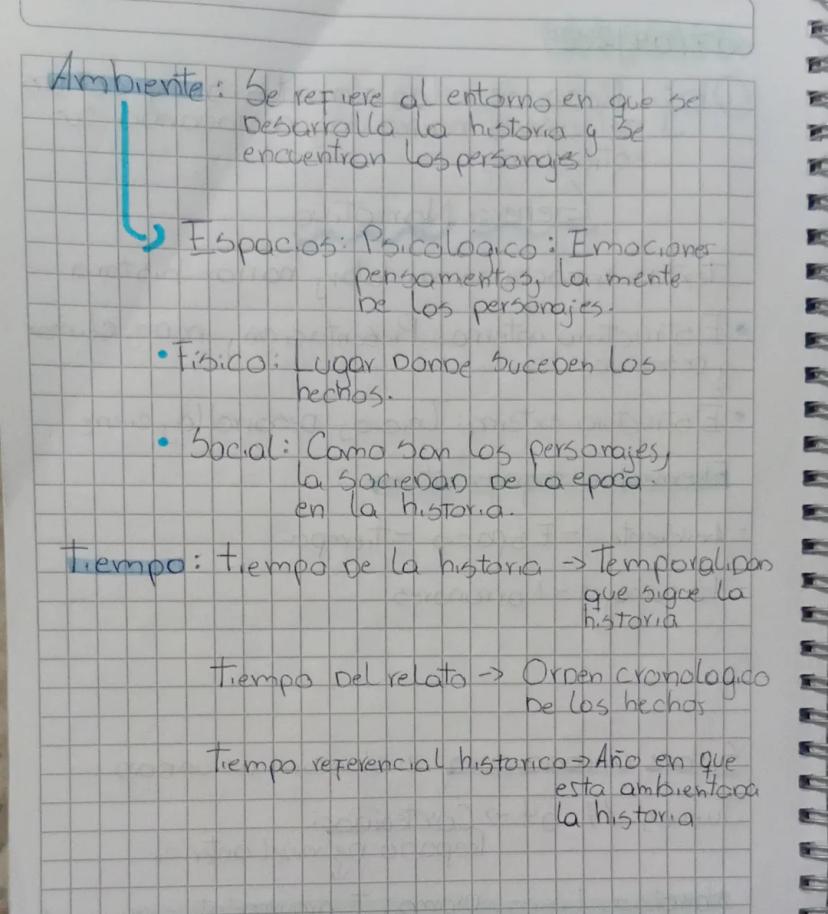 Ambiente: Se refiere al entorno en que se
Desarrolla la historia y se
encuentran los personajes
Espacios: Psicologico: Emociones
pensamentos, la mente
De los personajes.
• Fisico: Lugar Donde suceden los
hechos.
• Social: Como son los personajes,
la sociedad De la epoca.
en la historia.
Tiempo: tiempo De la historia → Temporalidad
que sigue la
historia
tiempo Del relato → Orden cronologico
De los hechos
Tiempo referencial historico → Año en que
esta ambientada
la historia